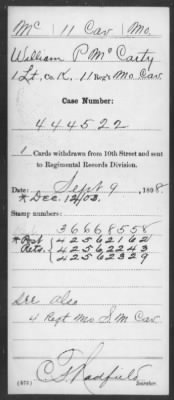 Mc | 11 Cav | Mo.
William P McCarty
1 Lt, Co. K, 11 Reg't Mo. Cav.
Case Number:
444522
1 Cards withdrawn from 10th Street and sent
to Regimental Records Division.
Date: Sept 9, 1898
* DEC. 12/03.
Stamp numbers:
36668558
* Post 42562162
Retn. 42562243
42562329
See also
4 Regt Mo S. M Cav
(573)
Searcher.